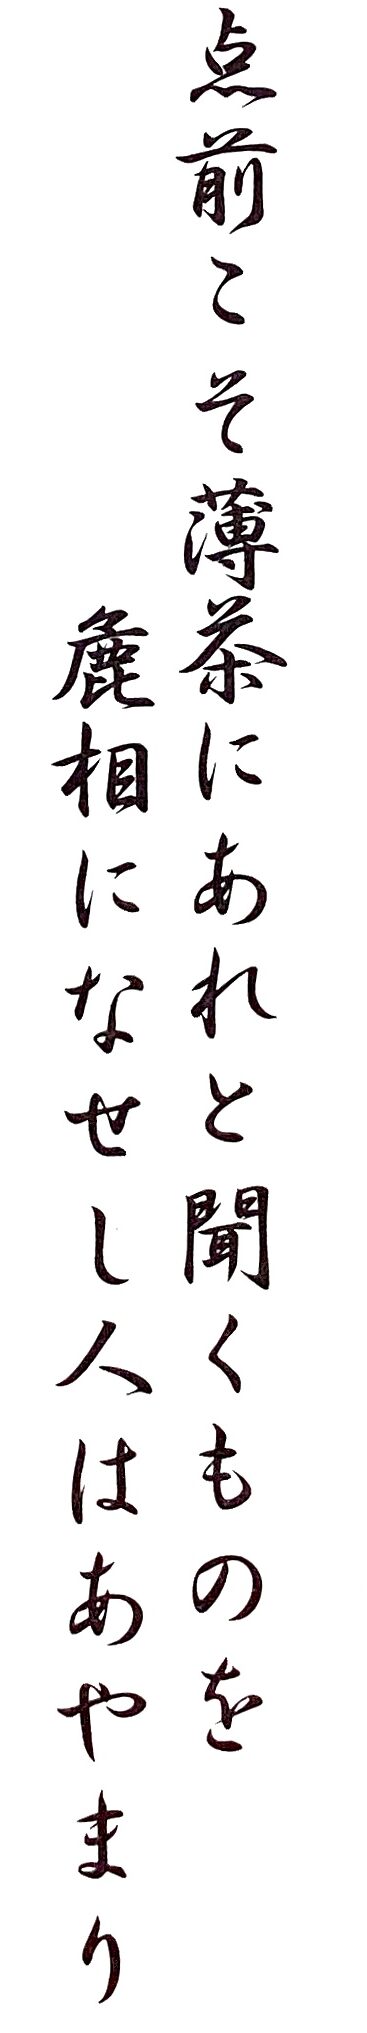 点前こそ薄茶にあれと聞くものを
麁相になせし人はあやまり